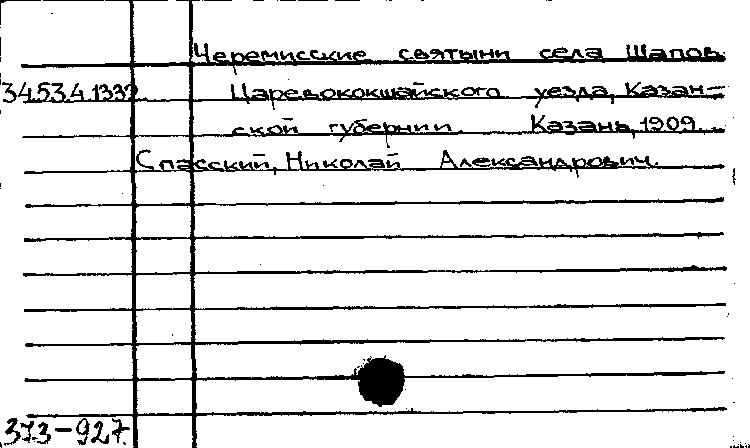 Черемисские святыни села Шапов
34.53.4.1332 Царевококшайского уезда, Казан-
ской губернии. Казань, 1909.
Спасский, Николай Александрович.
373-927.